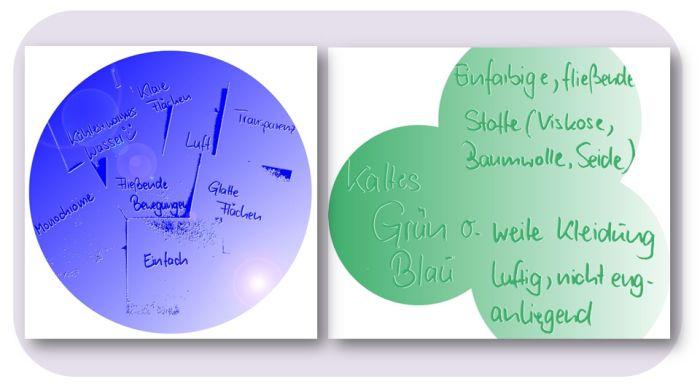 Klare
Flächen
Kühlenwarmes
Wasser
Luft
Transparenz
Fließende
Bewegungen
Glatte
Flächen
Monochrome
Einfach
Einfarbige, fließende
Stoffe (Viskose,
Baumwolle, Seide)
Kaltes
Grün o.
Blau
weite Kleidung
luftig, nicht eng-
anliegend